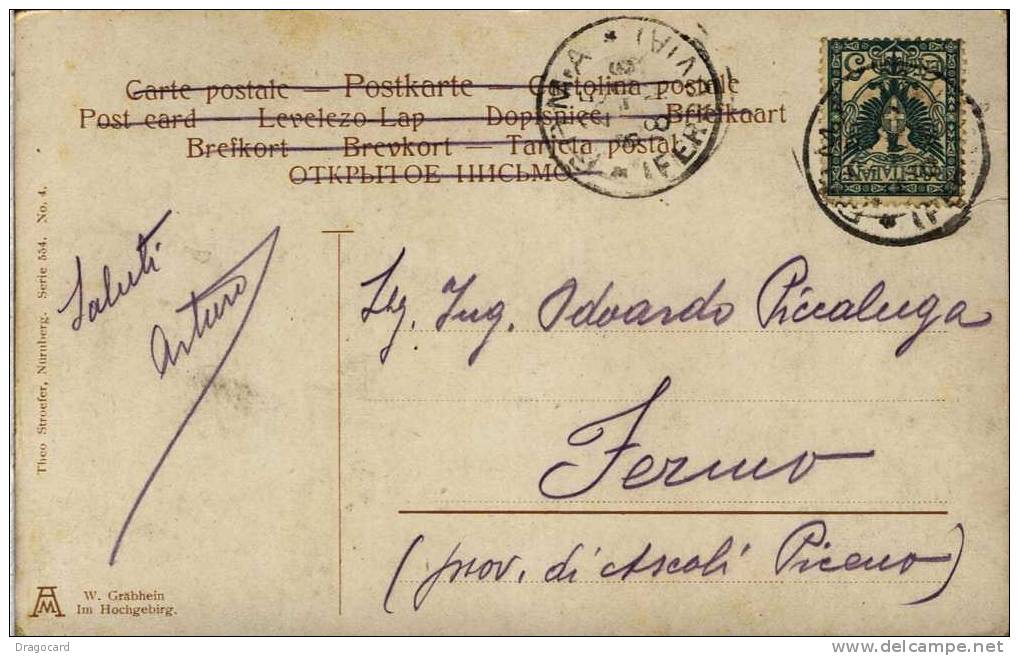 Carte postale — Postkarte — Cartolina postale
Post card — Levelezo-Lap — Dopisnice — Briefkaart
Brefkort — Brevkort — Tarjeta postal
ОТКРЫТОЕ ПИСЬМО
ROMA
(FERROVIA)
Saluti
Arturo
Ing. Odoardo Piccaluga
Fermo
(prov. di Ascoli Piceno)
Theo Stroefer, Nürnberg. Serie 554. No. 4.
W. Gräbhein
Im Hochgebirg.
Dragocard
www.delcampe.net